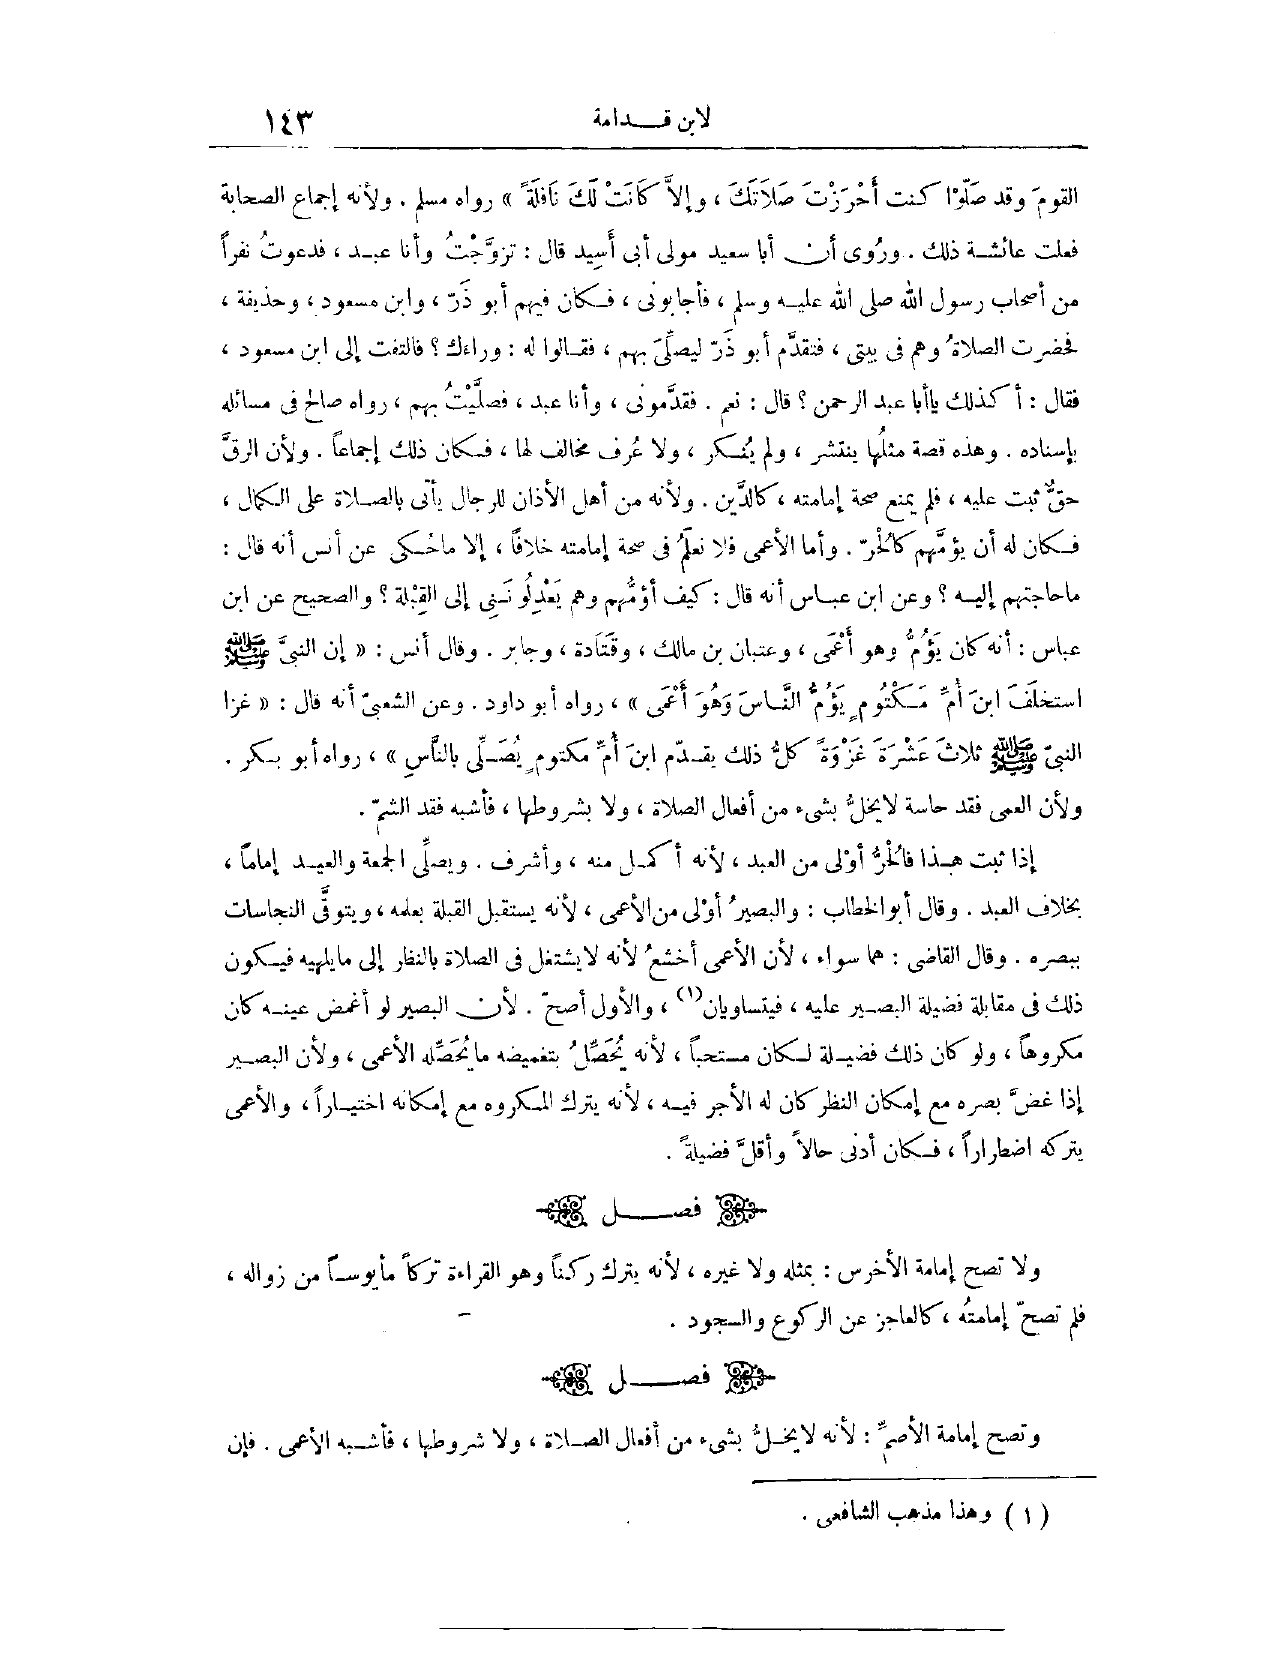 لابن قدامة
١٤٣
القومَ وقد صَلَّوْا كنت أَحْرَزْتَ صَلَاتَكَ ، وإلاَّ كَانَتْ لَكَ نَافلَةً » رواه مسلم . ولأنه إجماع الصحابة
فعلت عائشة ذلك . ورُوى أن أبا سعيد مولى أبى أَسِيد قال : تزوَّجْتُ وأنا عبد ، فدعوتُ نفراً
من أصحاب رسول الله صلى الله عليه وسلم ، فأجابونى ، فكان فيهم أبو ذَرّ ، وابن مسعود ، وحذيفة ،
فحضرت الصلاةُ وهم فى بيتى ، فتقدَّم أبو ذَرّ ليصلِّىَ بهم ، فقالوا له : وراءك ؟ فالتفت إلى ابن مسعود ،
فقال : أكذلك ياأبا عبد الرحمن ؟ قال : نعم . فقدَّمونى ، وأنا عبد ، فصلَّيْتُ بهم ، رواه صالح فى مسائله
بإسناده . وهذه قصة مثلُها ينتشر ، ولم يُنكر ، ولا عُرف مخالف لها ، فكان ذلك إجماعاً . ولأن الرقَّ
حقٌّ ثبت عليه ، فلم يمنع صحة إمامته ، كالدَّين . ولأنه من أهل الأذان للرجال يأتى بالصلاة على الكمال ،
فكان له أن يؤمَّهم كالحُرّ . وأما الأعمى فلا نعلمُ فى صحة إمامته خلافاً ، إلا ماحُكى عن أنس أنه قال :
ماحاجتهم إليه ؟ وعن ابن عباس أنه قال : كيف أؤمُّهم وهم يَعْدِلُونَنِى إلى القِبْلة ؟ والصحيح عن ابن
عباس : أنه كان يَؤُمُّ وهو أَعْمَى ، وعتبان بن مالك ، وقَتَادة ، وجابر . وقال أنس : « إن النبىَّ ﷺ
استخلَفَ ابنَ أُمِّ مَكْتُومٍ يَؤُمُّ النَّاسَ وَهُوَ أَعْمَى » ، رواه أبو داود . وعن الشعبىّ أنه قال : « غزا
النبىّ ﷺ ثلاثَ عَشْرَةَ غَزْوَةً كلُّ ذلك يقدّم ابنَ أُمِّ مكتومٍ يُصَلِّى بالنَّاسِ » ، رواه أبو بكر .
ولأن العمى فقد حاسة لايخلُّ بشىء من أفعال الصلاة ، ولا بشروطها ، فأشبه فقد الشمّ .
إذا ثبت هذا فالحُرُّ أوْلى من العبد ، لأنه أكمل منه ، وأشرف . ويصلِّى الجمعة والعيد إماماً ،
بخلاف العبد . وقال أبوالخطاب : والبصيرُ أوْلى من الأعمى ، لأنه يستقبل القبلة بعلمه ، ويتوقَّى النجاسات
ببصره . وقال القاضى : هما سواء ، لأن الأعمى أخشعُ لأنه لايشتغل فى الصلاة بالنظر إلى مايلهيه فيكون
ذلك فى مقابلة فضيلة البصير عليه ، فيتساويان(١) ، والأول أصحّ . لأن البصير لو أغمض عينه كان
مكروهاً ، ولو كان ذلك فضيلة لكان مستحباً ، لأنه يُحَصِّلُ بتغميضه مايُحَصِّله الأعمى ، ولأن البصير
إذا غضَّ بصره مع إمكان النظر كان له الأجر فيه ، لأنه يترك المكروه مع إمكانه اختياراً ، والأعمى
يتركه اضطراراً ، فكان أدنى حالاً وأقلَّ فضيلةً .
فصل
ولا تصح إمامة الأخرس : بمثله ولا غيره ، لأنه يترك ركناً وهو القراءة تركاً مأيوساً من زواله ،
فلم تصحّ إمامتُه ، كالعاجز عن الركوع والسجود .
فصل
وتصح إمامة الأصمِّ : لأنه لايخلُّ بشىء من أفعال الصلاة ، ولا شروطها ، فأشبه الأعمى . فإن
( ١ ) وهذا مذهب الشافعى .